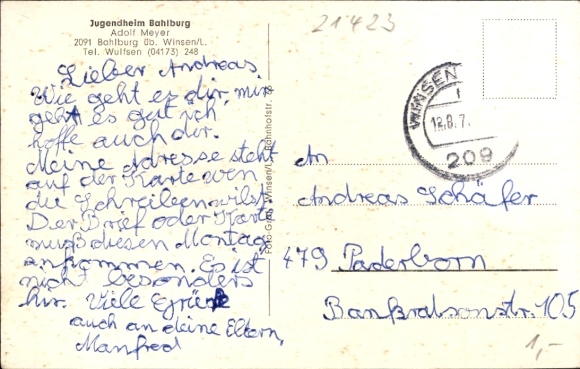 Jugendheim Bahlburg
Adolf Meyer
2091 Bahlburg üb. Winsen/L.
Tel. Wulfsen (04173) 248
21423
Lieber Andreas.
Wie geht es dir, mir
geht es gut ich
hoffe auch dir.
Meine Adresse steht
auf der Karte wen
du Schreiben wilst.
Der Brief oder Karte
muß diesen Montag
ankommen. Es ist
nicht besonders
hir. Viele Grüße
auch an deine Eltern,
Manfred
Winsen/L., Bahnhofstr.
WINSEN
12.8.7
209
An
Andreas Schäfer
479 Paderborn
Str. 105
1,-